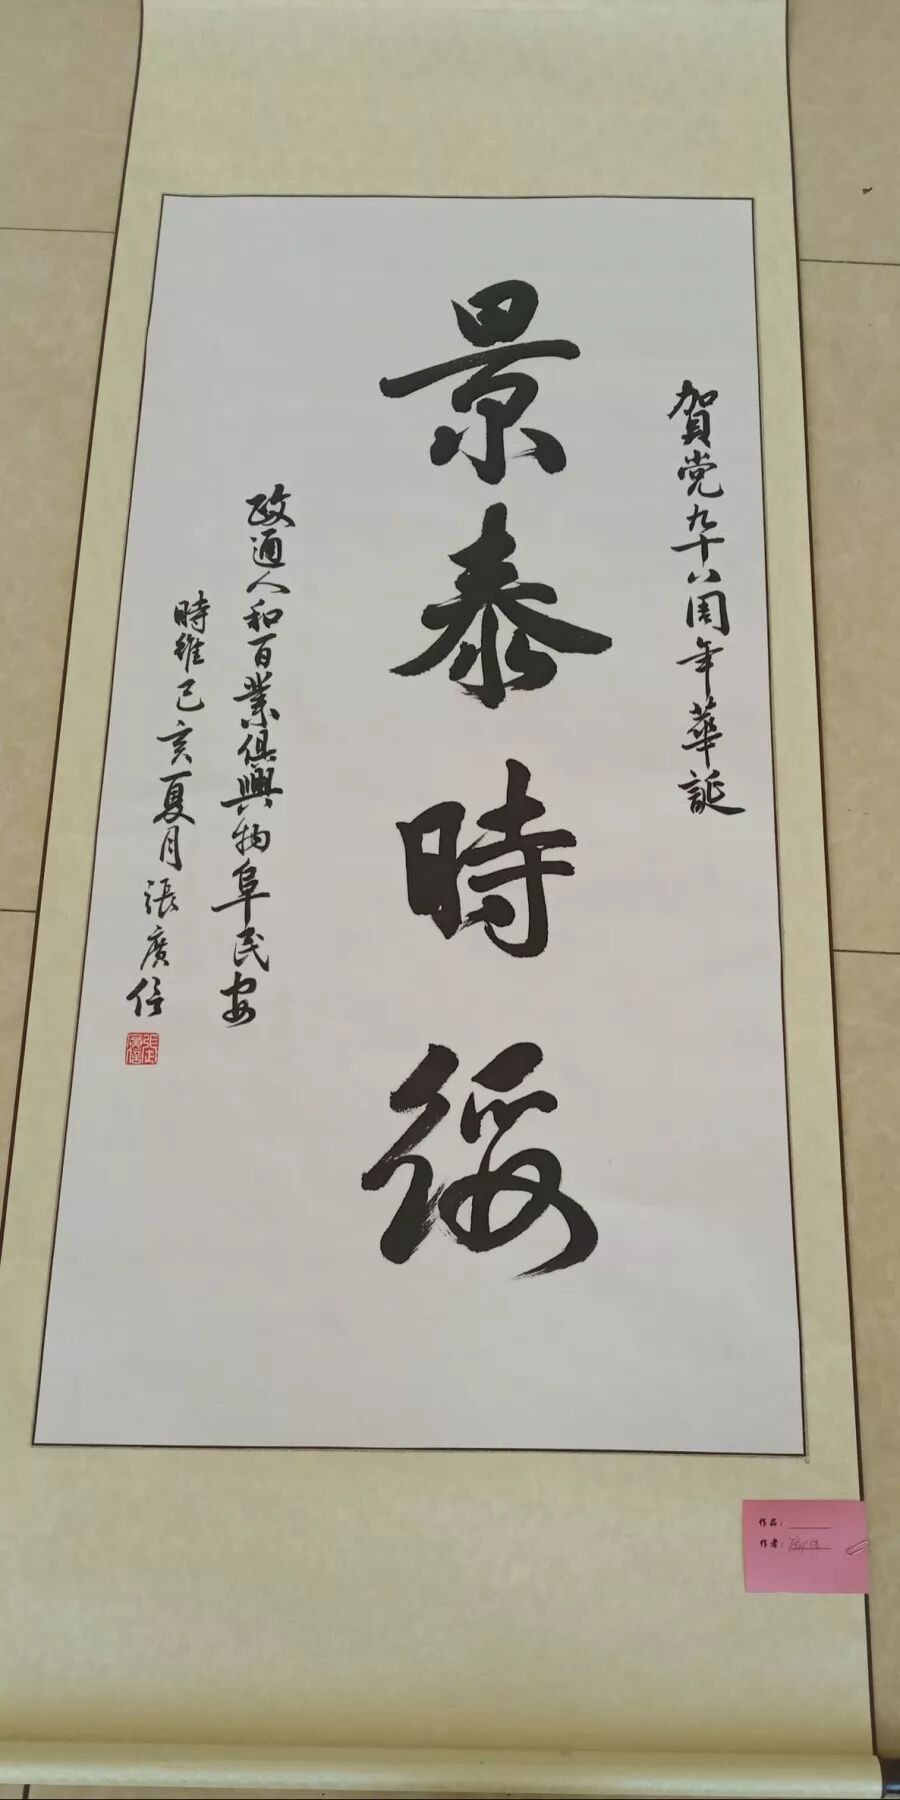 賀党九十八周年華誕
景泰時綏
政通人和百業俱興物阜民安
時維己亥夏月張廣信
作品：
作者：